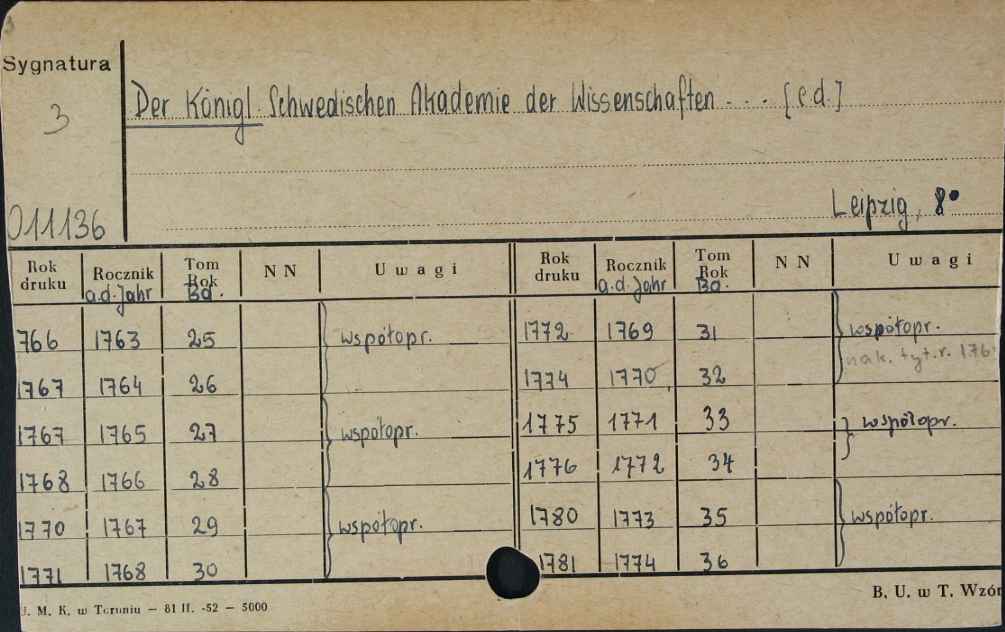 Sygnatura
3
Der Königl. Schwedischen Akademie der Wissenschaften . . . [e.d.]
Leipzig, 8°
011136
Rok druku Rocznik a.d. Jahr Tom Rok Bd. N N U w a g i Rok druku Rocznik a.d. Jahr Tom Rok Bd. N N U w a g i
766 1763 25 współopr. 1772 1769 31 współopr.
nak. tyt. r. 176
1767 1764 26 1774 1770 32
1767 1765 27 współopr. 1775 1771 33 współopr.
1768 1766 28 1776 1772 34
1770 1767 29 współopr. 1780 1773 35 współopr.
1771 1768 30 1781 1774 36
U. M. K. w Toruniu — 81 II. -52 — 5000
B. U. w T. Wzór